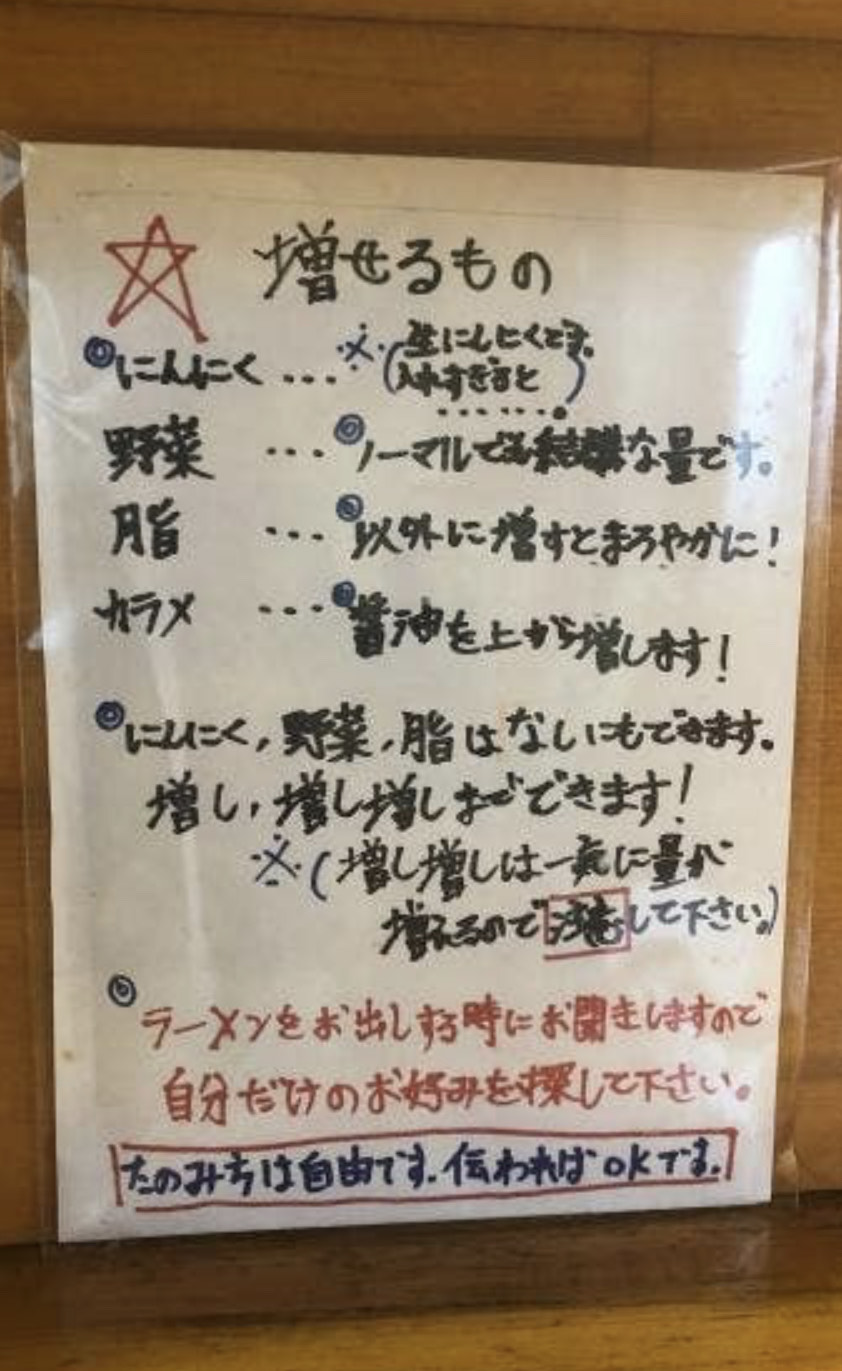 ☆ 増せるもの
◎にんにく ・・・ ※(生にんにくです。
入れすぎると
・・・・・・。)
野菜 ・・・ ◎ノーマルでも結構な量です。
脂 ・・・ ◎以外に増すとまろやかに!
カラメ ・・・ ◎醤油を上から増します!
◎にんにく,野菜,脂はなしにもできます。
増し,増し増しまでできます!
※(増し増しは一気に量が
増えるので注意して下さい。)
◎ラーメンをお出しする時にお聞きしますので
自分だけのお好みを探して下さい。
たのみ方は自由です.伝わればOKです.